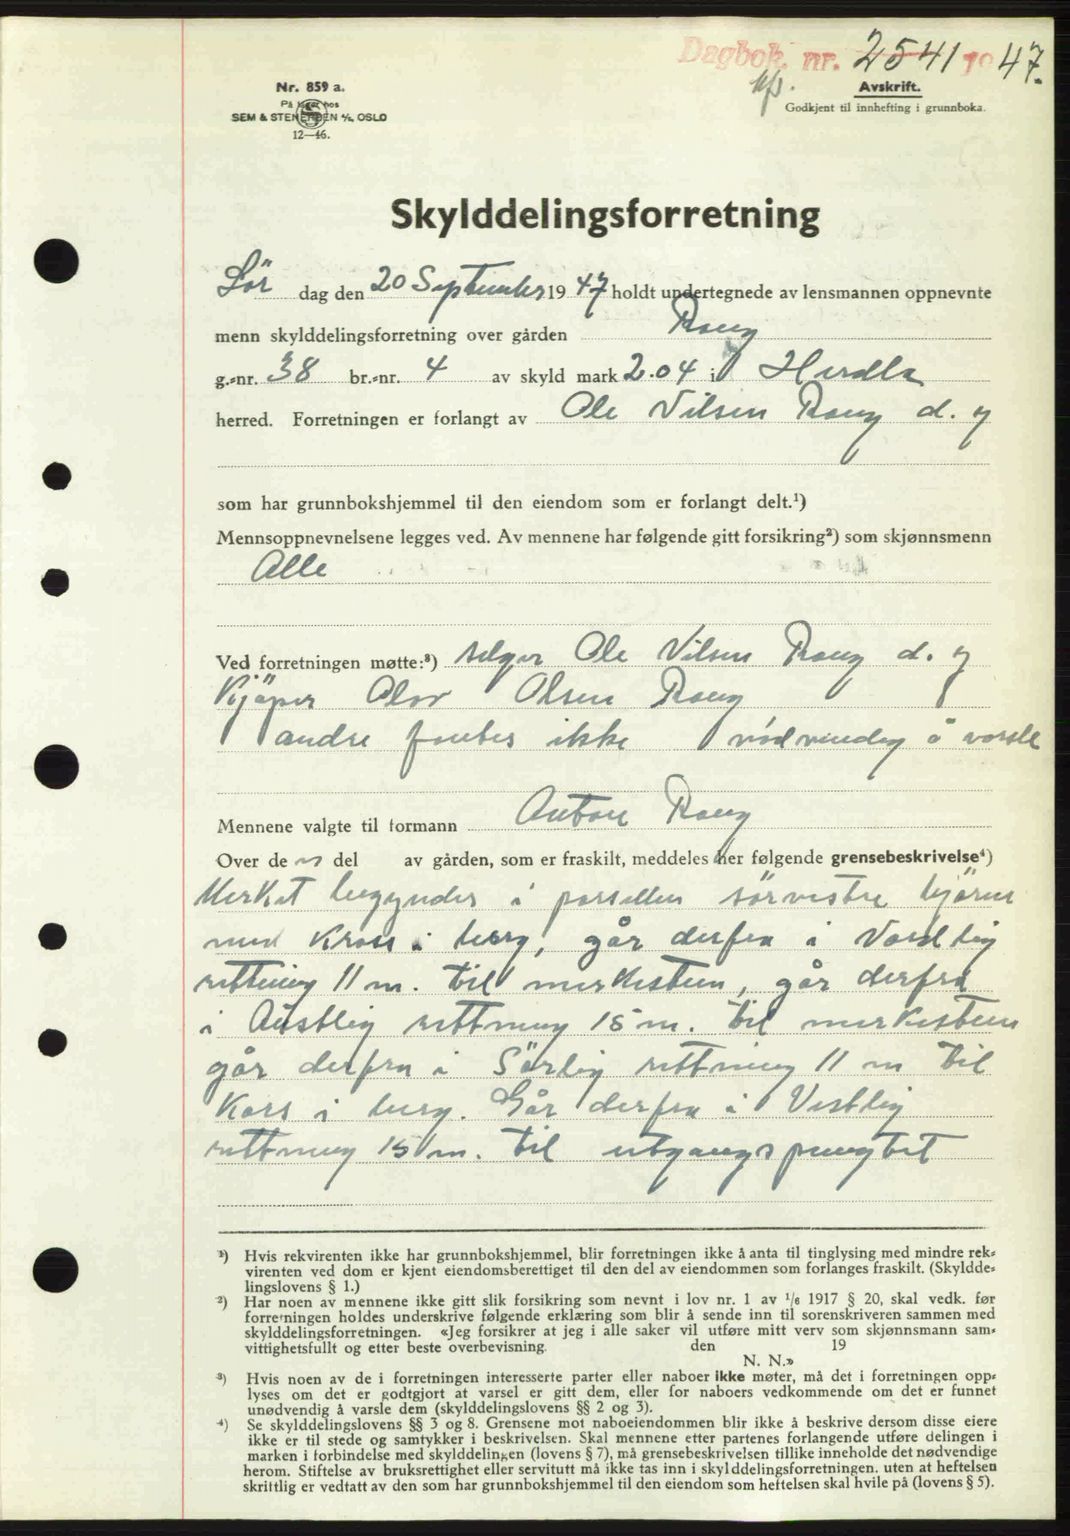 Dagbok nr. 2541 1947.
Nr. 859 a.
På lager hos
SEM & STENERSEN A/S, OSLO
12—46.
Avskrift.
Godkjent til innhefting i grunnboka.
Skylddelingsforretning
Lör dag den 20 September 1947 holdt undertegnede av lensmannen oppnevnte
menn skylddelingsforretning over gården Rong
g.-nr. 38 br.-nr. 4 av skyld mark 2.04 i Herdla
herred. Forretningen er forlangt av Ole Nilsen Rong d. y
som har grunnbokshjemmel til den eiendom som er forlangt delt.¹)
Mennsoppnevnelsene legges ved. Av mennene har følgende gitt forsikring²) som skjønnsmenn
Alle
Ved forretningen møtte:³) selger Ole Nilsen Rong d. y
Kjöper Olav Olsen Rong
andre fantes ikke nödvendig å varsle
Mennene valgte til formann Anton Rong
Over de n del av gården, som er fraskilt, meddeles her følgende grensebeskrivelse⁴)
Merket begynder i parsellen sörvestre hjörne
med Kross i berg, går derfra i Nordlig
rettning 11 m. til merkesten, går derfra
i Austlig rettning 15 m. til merkesten
går derfra i Sörlig rettning 11 m til
Kors i berg. Går derfra i Vestlig
rettning 15 m. til utgangspungtet
¹) Hvis rekvirenten ikke har grunnbokshjemmel, blir forretningen ikke å anta til tinglysing med mindre rek-
virenten ved dom er kjent eiendomsberettiget til den del av eiendommen som forlanges fraskilt. (Skyldde-
lingslovens § 1.)
²) Har noen av mennene ikke gitt slik forsikring som nevnt i lov nr. 1 av 1/6 1917 § 20, skal vedk. før
forretningen holdes underskrive følgende erklæring som blir å sende inn til sorenskriveren sammen med
skylddelingsforretningen. «Jeg forsikrer at jeg i alle saker vil utføre mitt verv som skjønnsmann sam-
vittighetsfullt og etter beste overbevisning. den 19
N. N.»
³) Hvis noen av de i forretningen interesserte parter eller naboer ikke møter, må det i forretningen opp-
lyses om det er godtgjort at varsel er gitt dem, eller for naboers vedkommende om det er funnet
unødvendig å varsle dem (skylddelingslovens §§ 2 og 3).
⁴) Se skylddelingslovens §§ 3 og 8. Grensene mot naboeiendommen blir ikke å beskrive dersom disse eiere
ikke er til stede og samtykker i beskrivelsen. Skal mennene etter partenes forlangende utføre delingen i
marken i forbindelse med skylddelingen (lovens § 7), må grensebeskrivelsen tillike inneholde det nødvendige
herom. Stiftelse av bruksrettighet eller servitutt må ikke tas inn i skylddelingsforretningen. uten at heftelsen
skriftlig er vedtatt av den som har grunnbokshjemmel til den eiendom som heftelsen skal hvile på (lovens § 5).